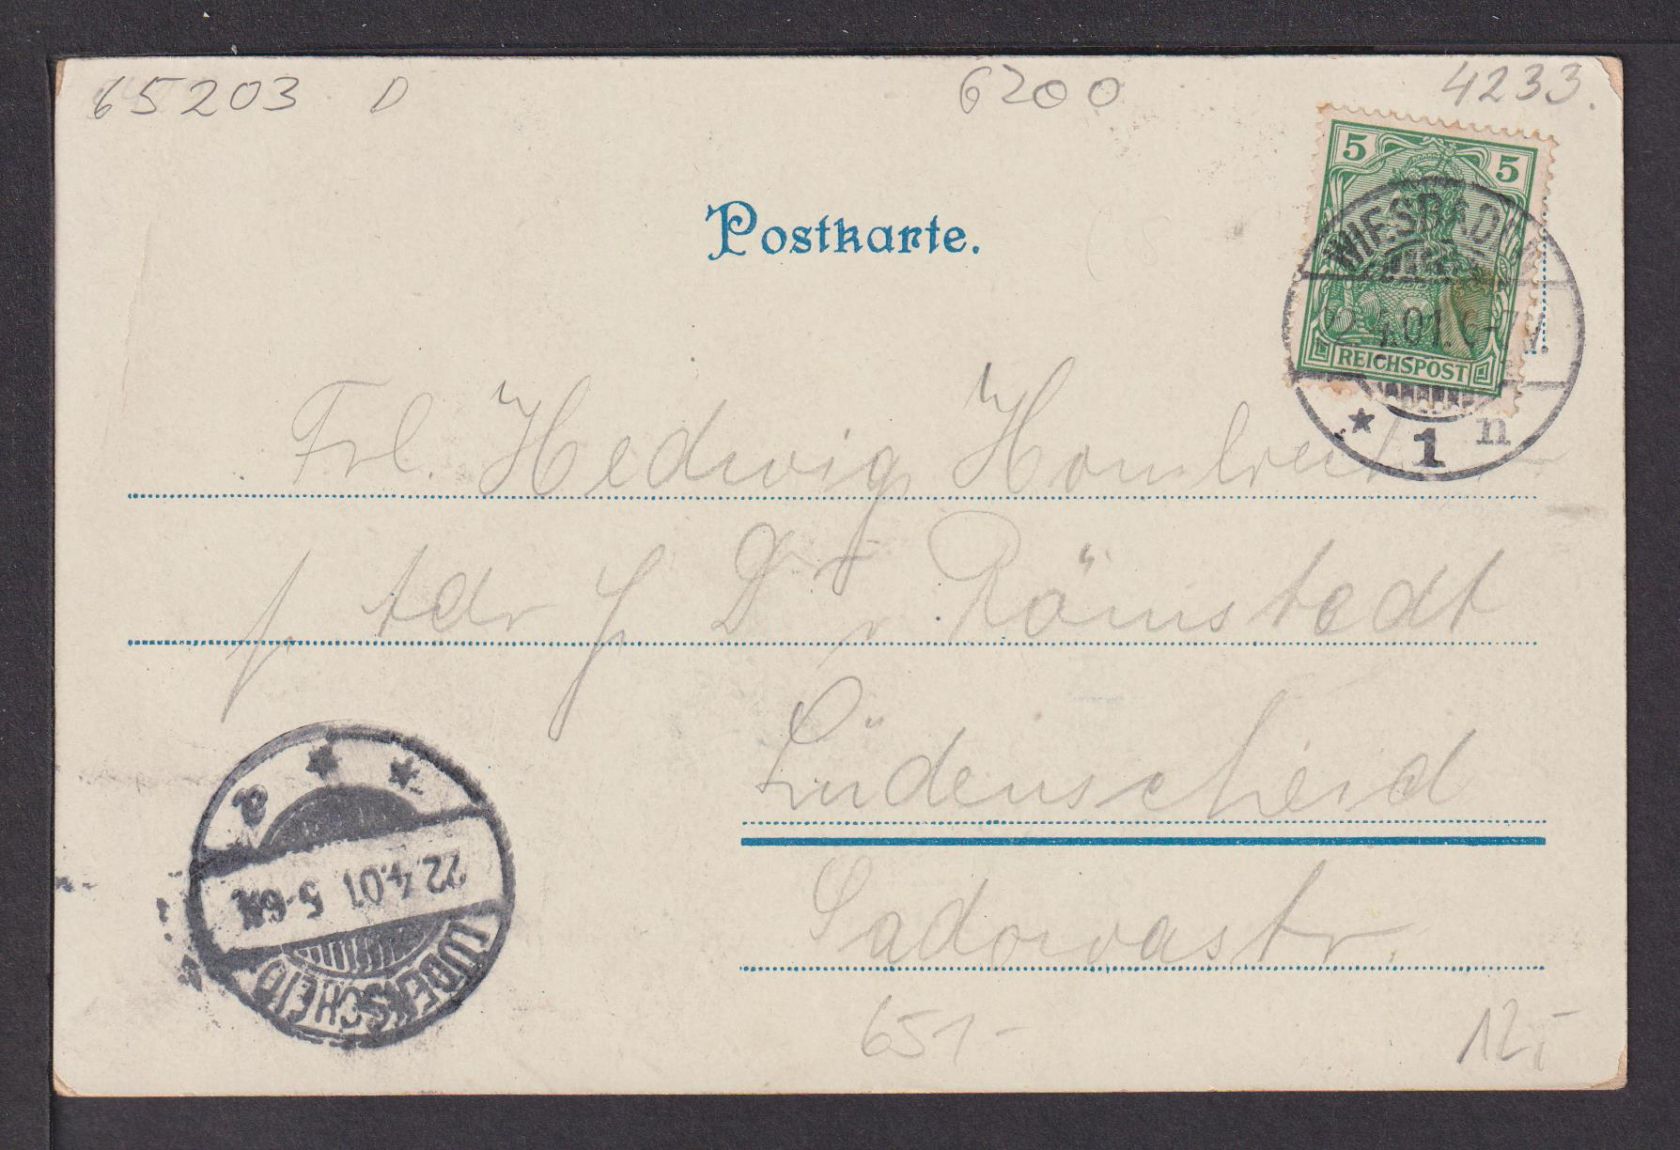 65203 D 6200 4233.
5 5
Postkarte.
WIESBADEN
22.4.01. 6-7V.
REICHSPOST
* 1 n
Frl. Hedwig
p. adr. Dr Römstedt
Lüdenscheid
Sadowastr.
a * *
22.4.01 5-6N
LÜDENSCHEID
651- 12,-